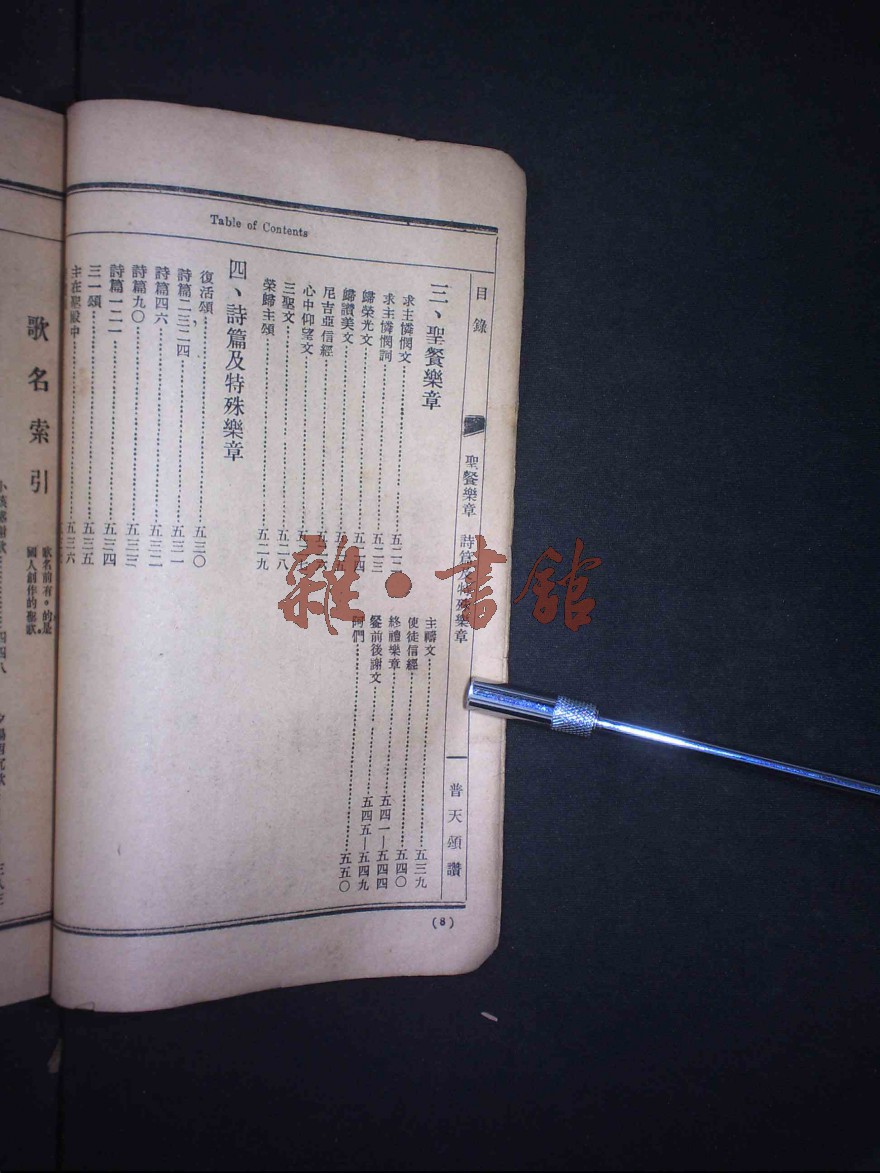 Table of Contents
目錄
聖餐樂章 詩篇及特殊樂章
普天頌讚
(8)
三、聖餐樂章
求主憐憫文……五二二
求主憐憫詞……五二三
歸榮光文……五二四
歸讚美文
尼吉亞信經
心中仰望文
三聖文……五二八
榮歸主頌……五二九
四、詩篇及特殊樂章
復活頌……五三〇
詩篇二三二四……五三一
詩篇四六……五三二
詩篇九〇……五三三
詩篇一二一……五三四
三一頌……五三五
主在聖殿中……五三六
主禱文……五三九
使徒信經……五四〇
終禮樂章……五四一—五四四
餐前後謝文……五四五—五四九
阿們……五五〇
歌名索引
歌名前有。的是
國人創作的聖歌。
雜·書館